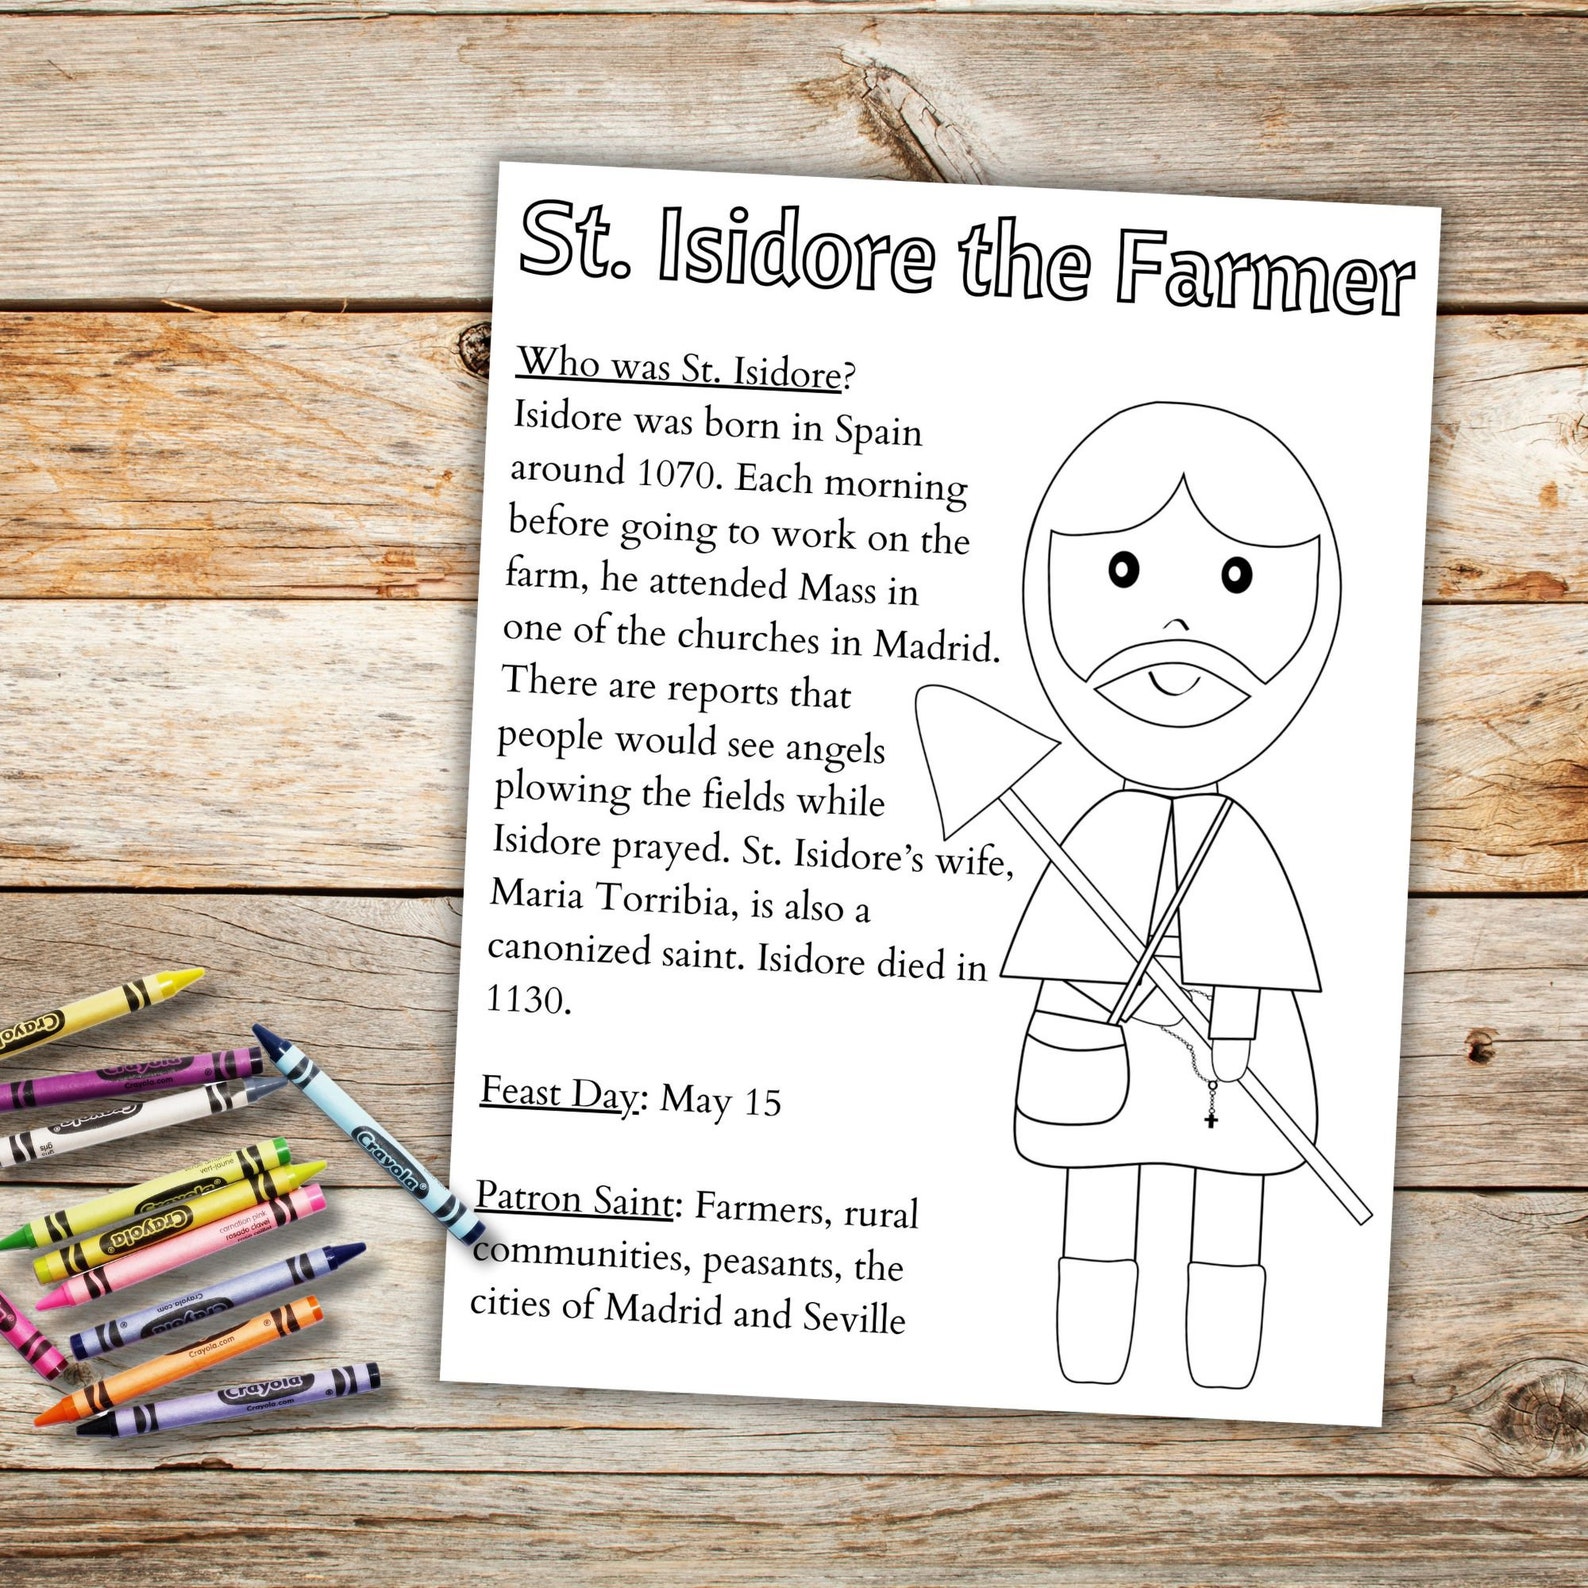 St. Isidore the Farmer
Who was St. Isidore?
Isidore was born in Spain
around 1070. Each morning
before going to work on the
farm, he attended Mass in
one of the churches in Madrid.
There are reports that
people would see angels
plowing the fields while
Isidore prayed. St. Isidore’s wife,
Maria Torribia, is also a
canonized saint. Isidore died in
1130.
Feast Day: May 15
Patron Saint: Farmers, rural
communities, peasants, the
cities of Madrid and Seville
Crayola
Crayola
Crayola.com
Crayola
gris
Crayola
vert-jaune
Crayola
Crayola
carnation pink
rosado clavel
Crayola
Crayola.com
Crayola
Crayola.com
Crayola
Crayola.com